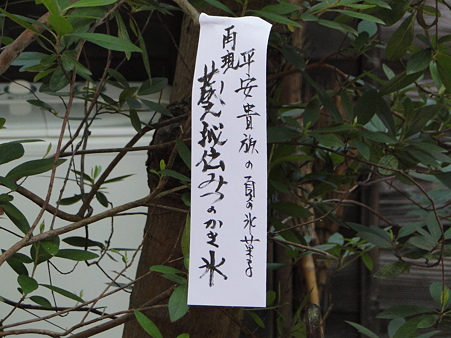 再現
平安貴族の夏の氷菓子
みつのかき氷